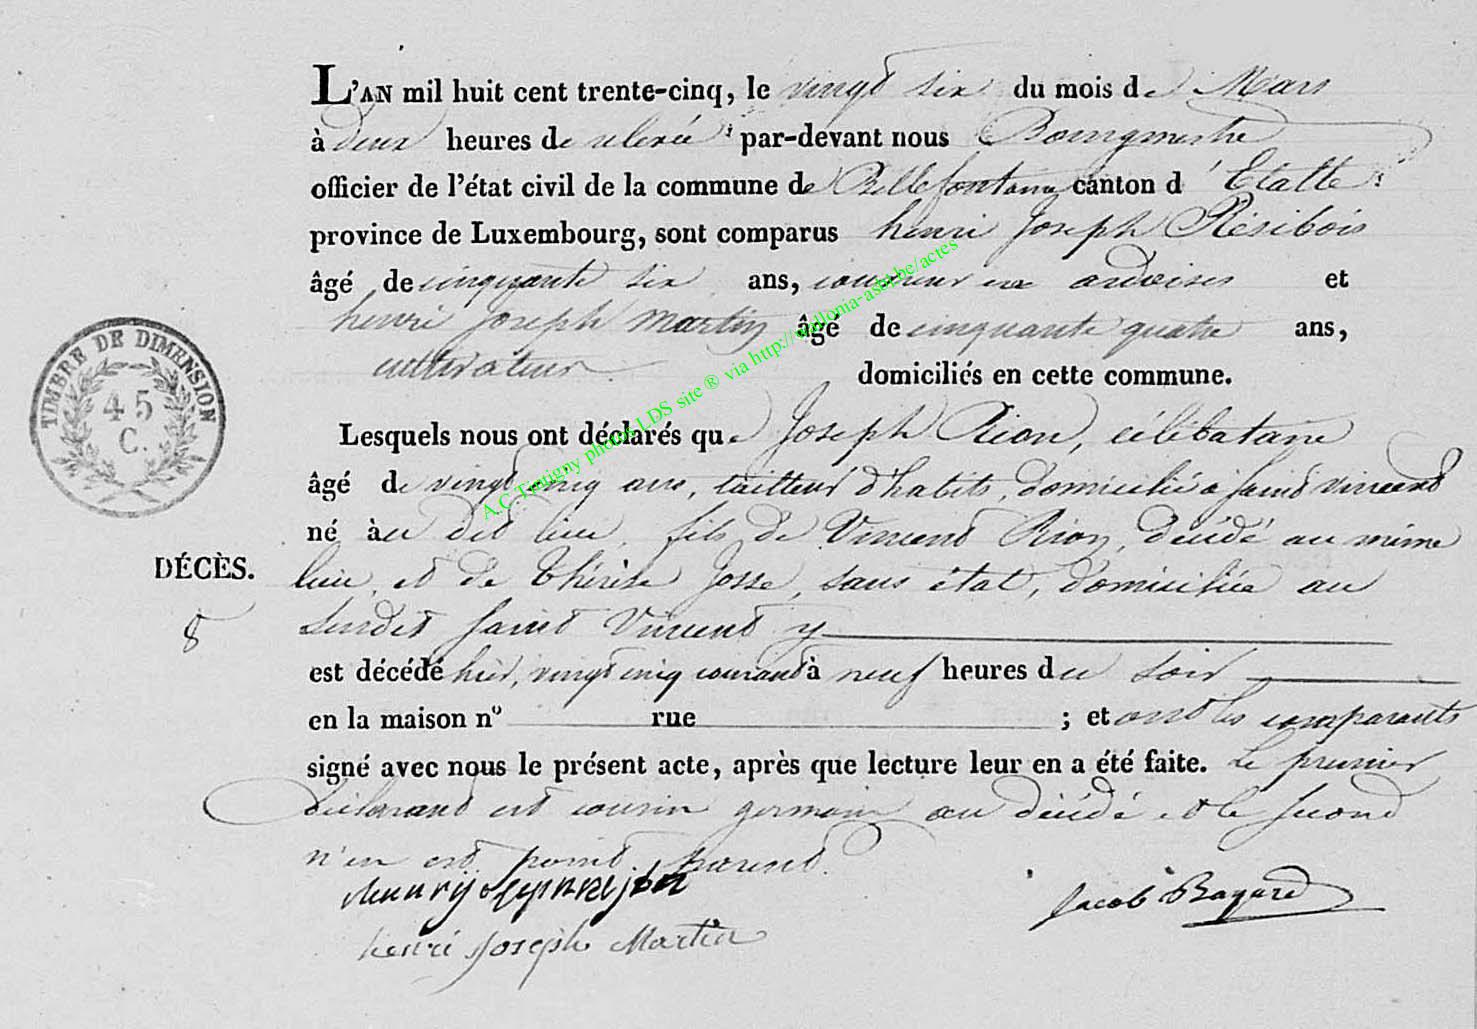 L'AN mil huit cent trente-cinq, le vingt six du mois de Mars
à deux heures de relevée par-devant nous Bourgmestre
officier de l'état civil de la commune de Bellefontaine canton d'Etalle
province de Luxembourg, sont comparus henri Joseph Résibois
âgé de cinquante six ans, couvreur en ardoises et
henri Joseph Martin âgé de cinquante quatre ans,
cultivateur. domiciliés en cette commune.
Lesquels nous ont déclarés que Joseph Rion, célibataire
âgé de vingt cinq ans, tailleur d'habits, domicilié à Saint Vincent
né au dit lieu, fils de Vincent Rion, décédé au même
lieu, et de Thérèse Josse, sans état, domiciliée au
susdit Saint Vincent y
est décédé hier, vingt cinq courant à neuf heures du soir
en la maison nº rue ; et ont les comparants
signé avec nous le présent acte, après que lecture leur en a été faite. Le premier
déclarant est cousin germain au décédé et le second
n'en est point parent.
henri Joseph Martin
Jacob Bayard
DÉCÈS.
8
TIMBRE DE DIMENSION
45
C.
A.C.Tintigny photos LDS site ® via http://wallonia-asbl.be/actes